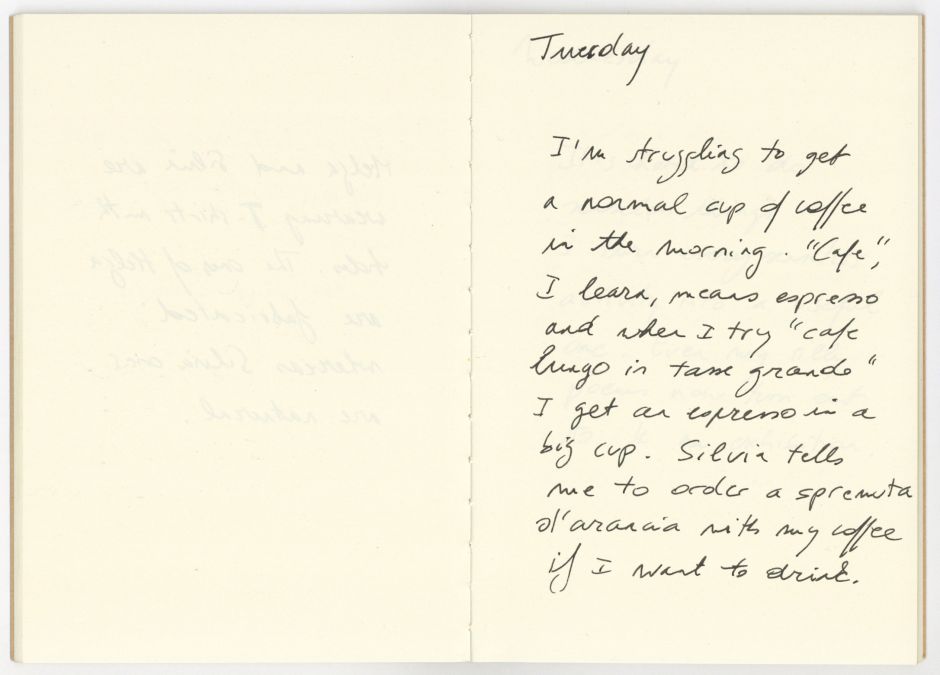 Tuesday
I'm struggling to get
a normal cup of coffee
in the morning. "Cafe",
I learn, means espresso
and when I try "cafe
lungo in tasse grande"
I get an espresso in a
big cup. Silvia tells
me to order a spremuta
d'arancia with my coffee
if I want to drink.